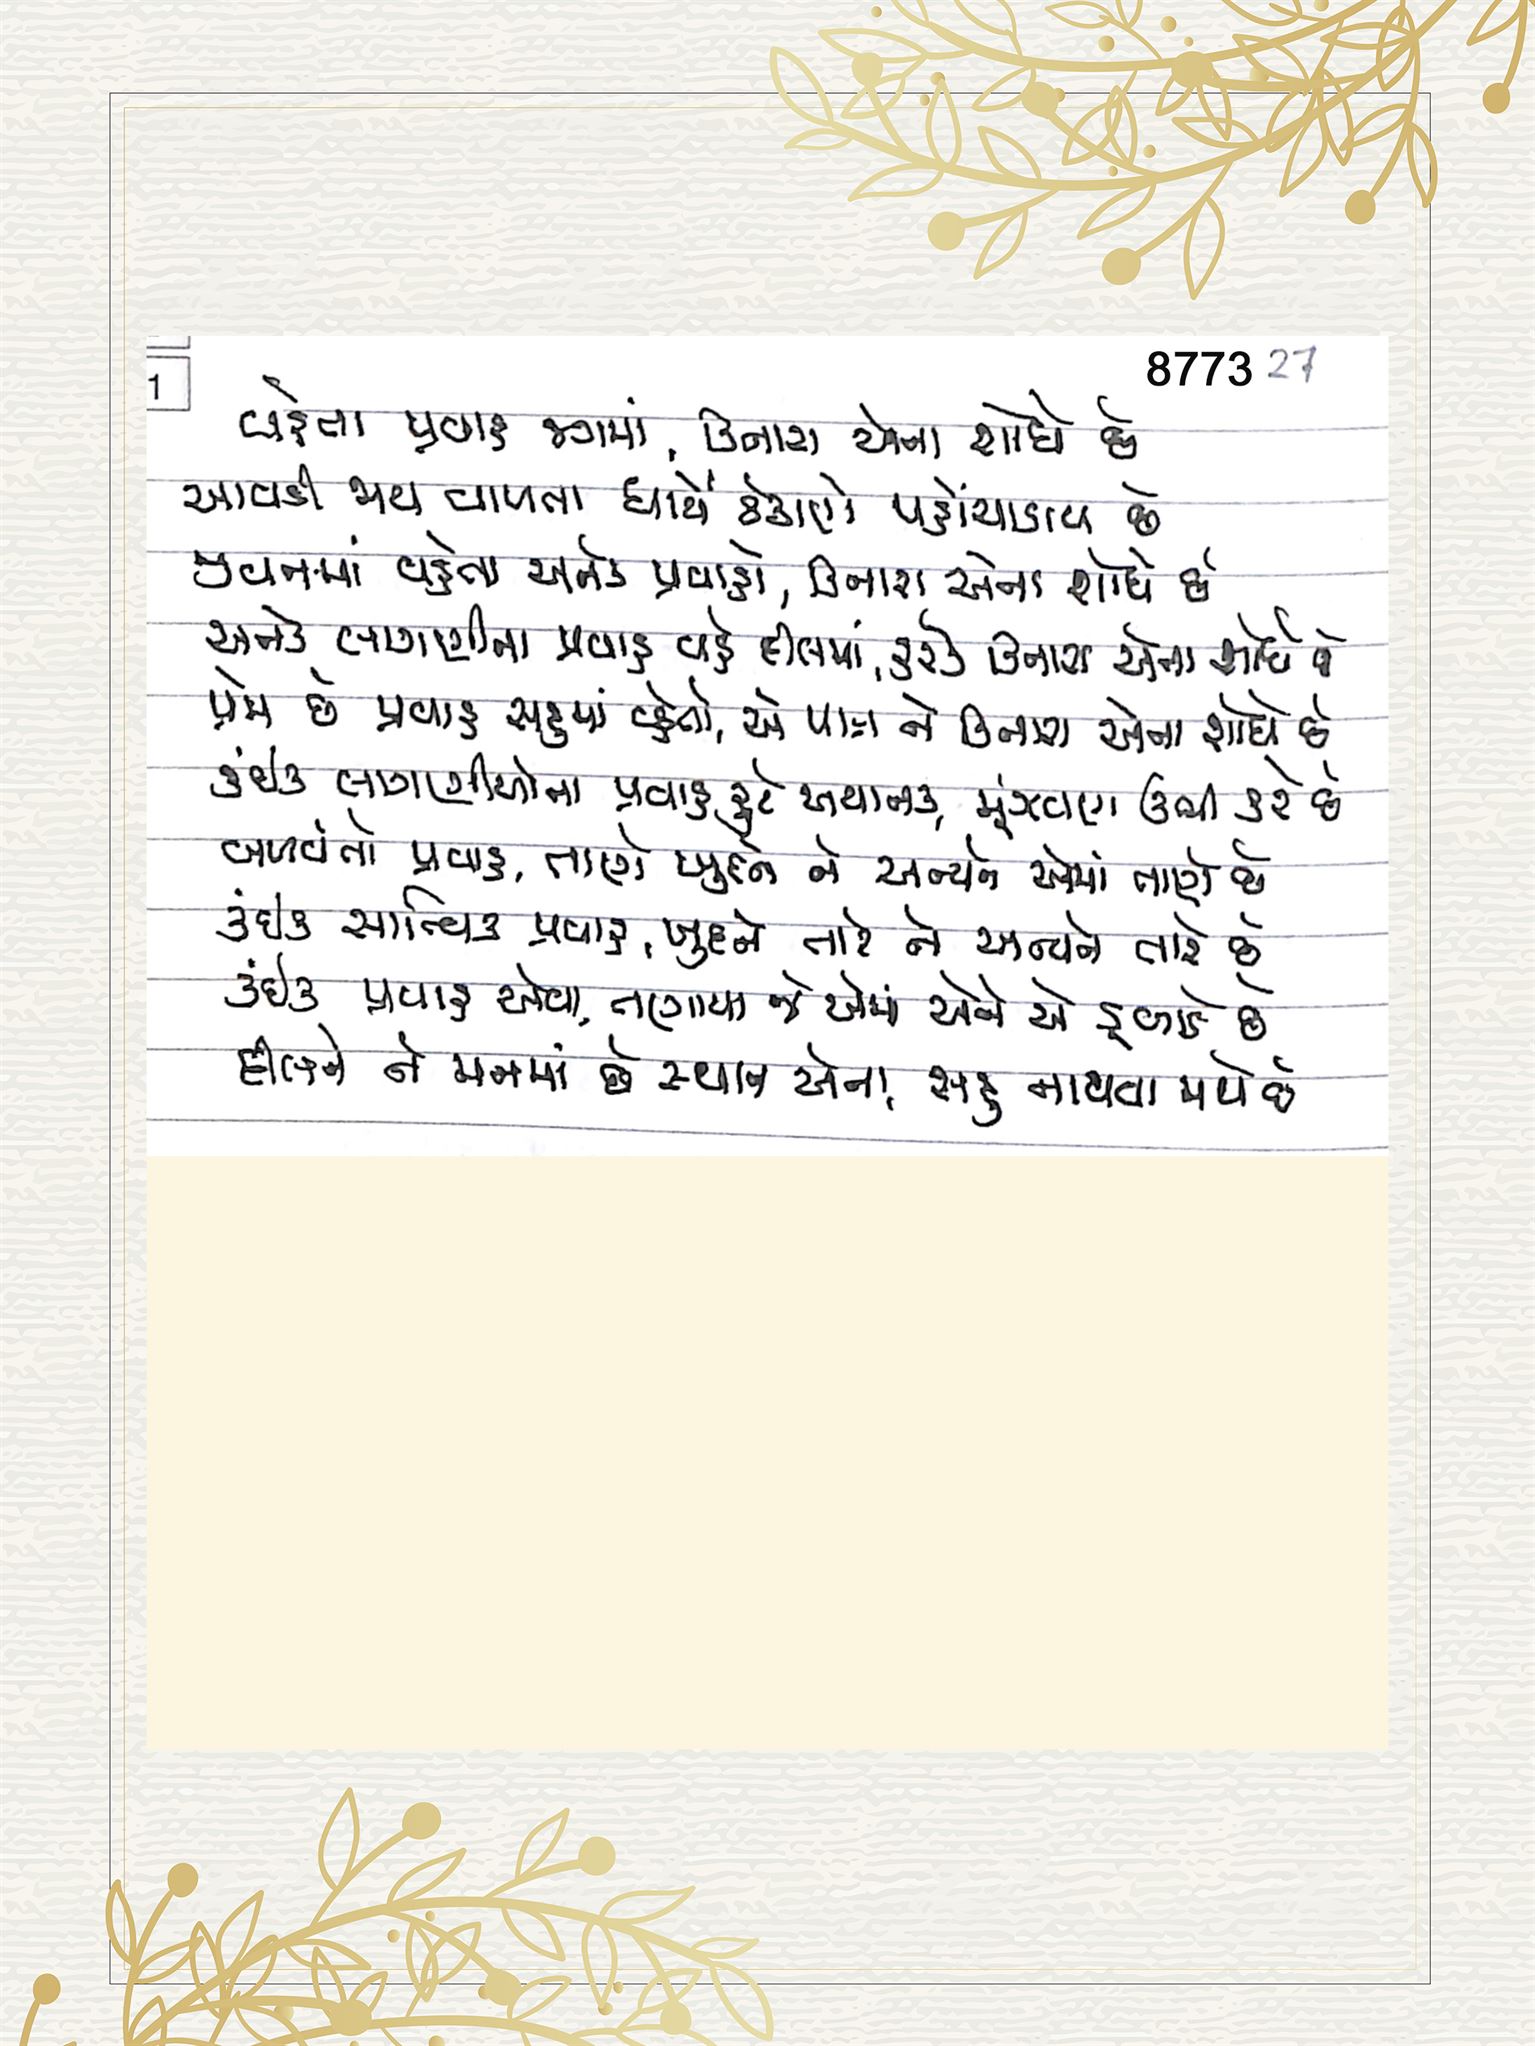 8773 27
1
વહેતા પ્રવાહ જગમાં, કિનારા એના શોધે છે
આવડી જાય વાળતા ધાર્યે ઠેકાણે પહોંચાડાય છે
જીવનમાં વહેતા અનેક પ્રવાહો, કિનારા એના શોધે છે
અનેક લાગણીના પ્રવાહ વહે દીલમાં, હરેક કિનારા એના શોધે છે
પ્રેમ છે પ્રવાહ સહુમાં વહેતો, એ પણ ને કિનારા એના શોધે છે
કંઈક લાગણીઓના પ્રવાહ ફુટે અચાનક, મૂંઝવણ ઉભી કરે છે
બળવંતો પ્રવાહ, તાણે ખુદને ને અન્યને એમાં તાણે છે
કંઈક સાત્ત્વિક પ્રવાહ, ખુદને તારે ને અન્યને તારે છે
કંઈક પ્રવાહ એવા, તણાયા જે એમાં એને એ ડૂબાડે છે
દીલને ને મનમાં છે સ્થાન એના, સહુ નાથવા મથે છે